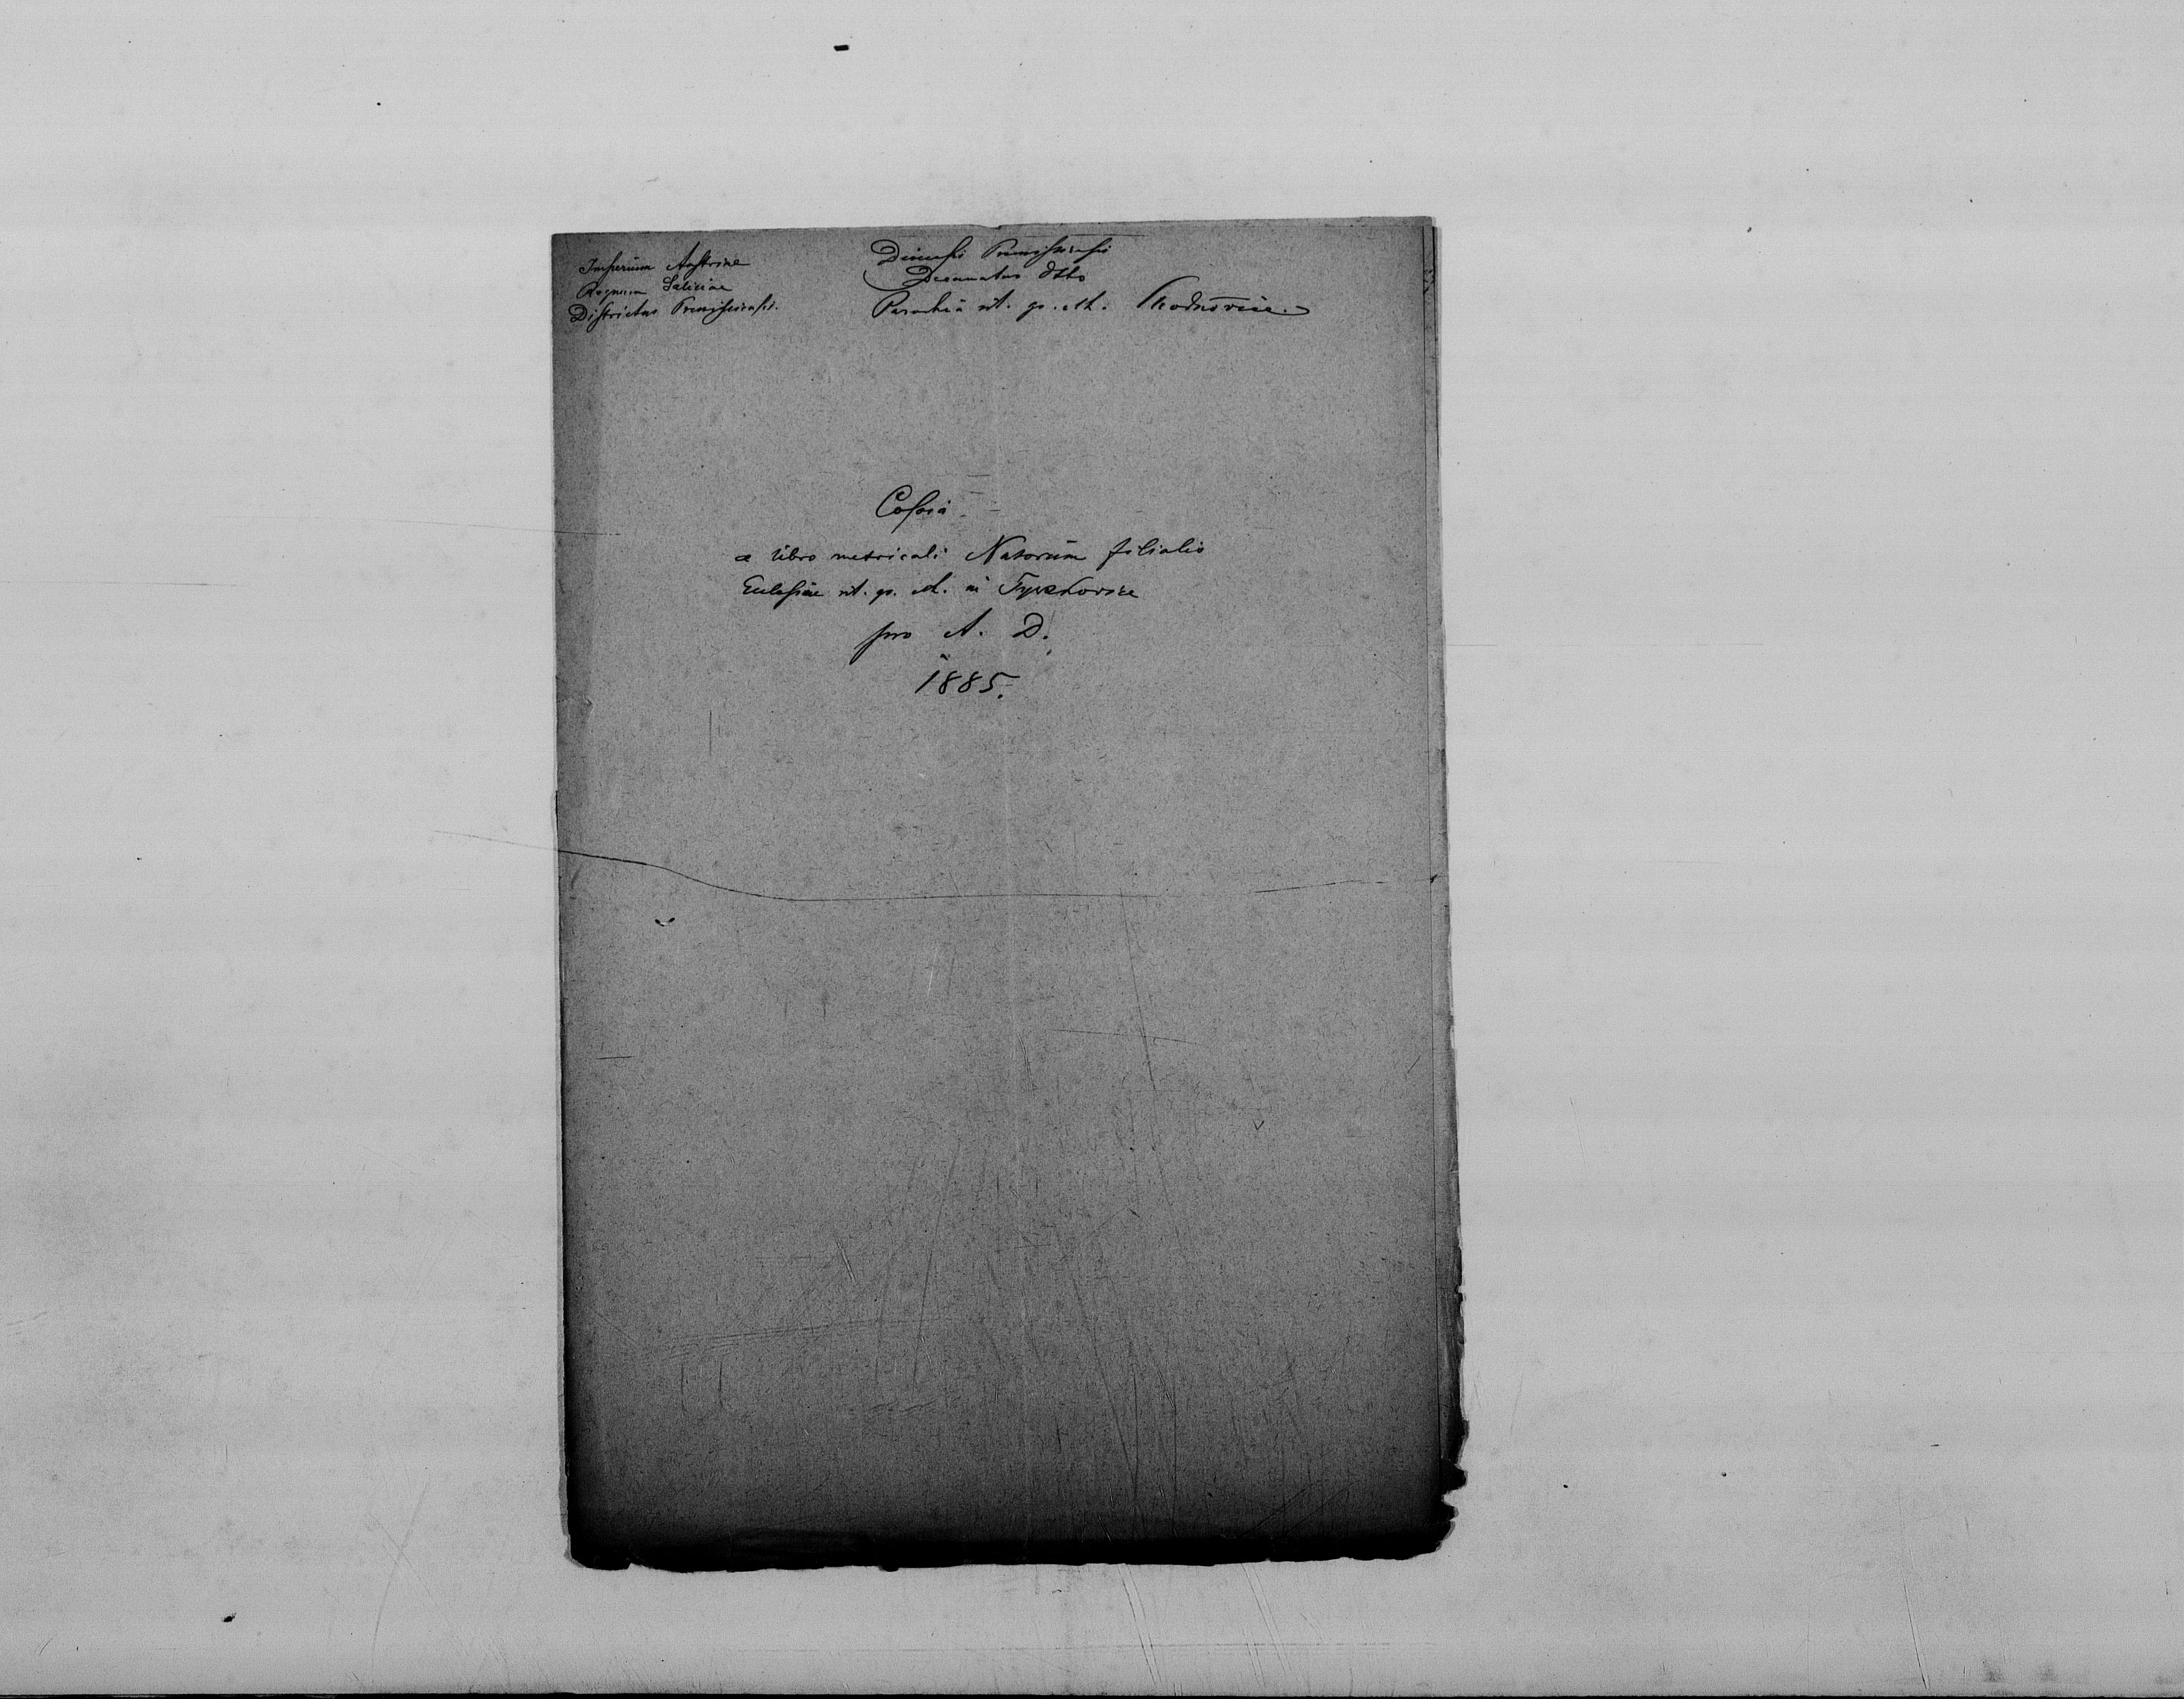 Imperium Austriae
Regnum Galiciae
Districtus Premisliensis.
Diecesis Premisliensis
Decanatus dtto
Parochia rit. gr. cth. Chodnovice.
Copia
e libro metricali Natorum filialis
Ecclesiae rit. gr. ct. in Tyszkovice
pro A. D.
1885.